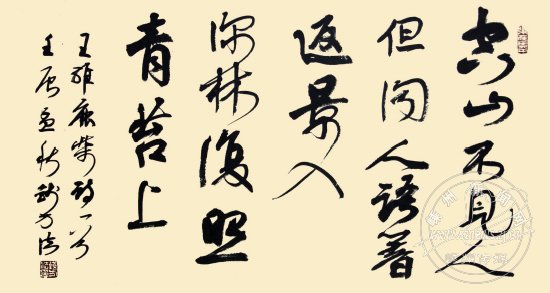 空山不見人
但聞人語響
返景入
深林復照
青苔上
王維鹿柴詩一首
壬辰孟秋